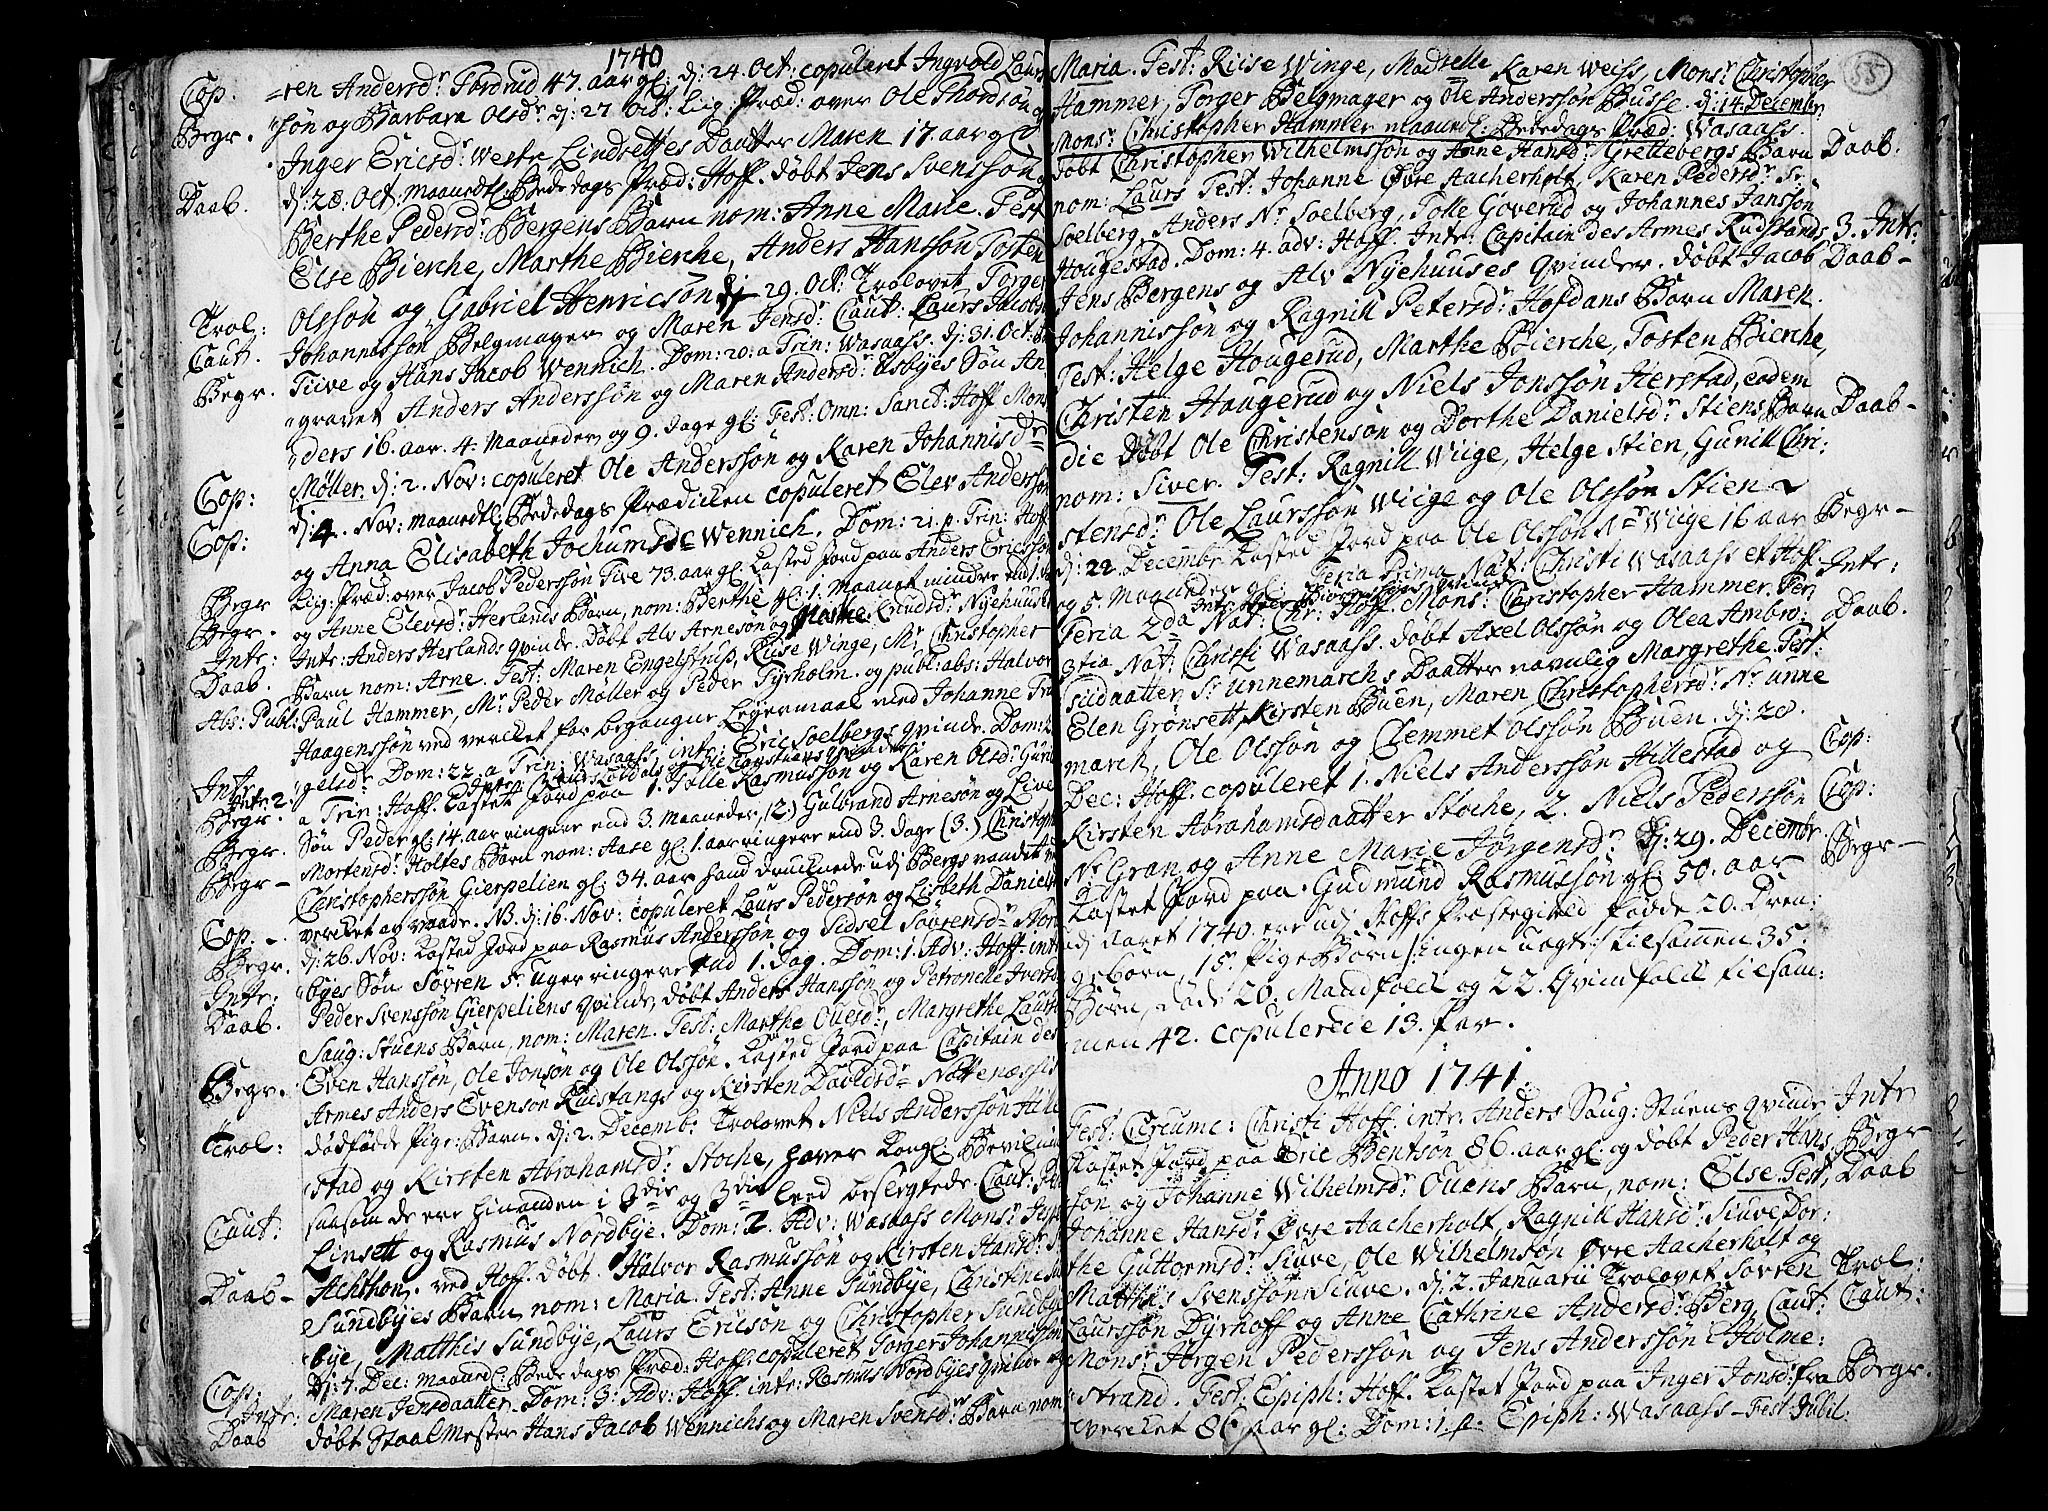 1740
Cop. =ren Andersdr Fordrud 47. aar gl: dj: 24. Oct: copuleret Ingvold Laurs
Begr. søn og Barbara Olsdr. dj: 27 Oct: Lig: Præd: over Ole Thordsøn og
Inger Ericsdr westre Lindsettes Daatter Maren 17. aar gl:
Daab. dj: 28. Oct: maanedtl: Bededags Præd: Hoff. døbt Jens Svenssøn og
Berthe Pedersdr Bergens Barn nom: Anne Marie. Test:
Else Bierche, Marthe Bierche, Anders Hanssøn, Tosten
Trol: Olssøn og Gabriel Henricsøn dj 29. Oct: Trolovet Torger
Caut. Johannissøn Belgmager og Maren Jensdr. Caut: Laurs Jacobs
Begr. Tiive og Hans Jacob Wennich. Dom: 20. a Trin: Wasaass. dj: 31. Oct: be
gravet Anders Anderssøn og Maren Andersdr. Øsbyes Søn An
ders 16. aar. 4. Maaneder og 9. Dage gl: Fest: Omn: Sanct: Hoff Mons
Cop: Møller. dj: 2. Nov: copuleret Ole Anderssøn og Karen Johannisdr
Cop: dj 4. Nov: maanedtl: Bededags Prædicken copuleret Elev Anderssøn
og Anna Elisabeth Jochumsdr Wennich. Dom: 21. p. Trin: Hoff.
Begr Lig: Præd: over Jacob Pederssøn Tive 73. aar gl. Kasted Jord paa Anders Ericssøn
Begr. og Anne Elevsdr. Herlands Barn, nom: Berthe gl: 1. Maanet mindre end 1.
Intr: Intr: Anders Herlands Qvinde. Døbt Alv Arnesøn og Marthe Knudsdr. Nyehuuses
Daab. Barn nom: Arne. Test: Maren Engelstrup, Riise Winge, Mr Christopher
Abs: Publ: Paul Hammer, Mr. Peder Møller og Peder Tyrholm. og publ: abs: Halvor
Haagenssøn ved vercket for begangne Leyermaal med Johanne Tru
Intr. gelsdr. Dom: 22. a Trin: Wasaass, intr: Eric Soelbergs qvinde. Dom:
Intr: 2.
Begr. a Trin: Hoff. Kastet Jord paa 1. Tolle Rasmussøn og Karen Olsdr.
Begr. Søn Peder gl: 14. aar ringere end 3. maaneder, (2) Gulbrand Arnesøn og Live
Begr - Mortensdr. Holtes Barn nom: Aase gl: 1. aar ringere end 3. dage (3.) Christopher
Christopherssøn Gierpelien gl: 34. aar hand drucknede udj Bergs vandet ved
Cop. - vercket av vaade. NB. dj: 16. Nov: copuleret Laurs Pedersøn og Lisbeth Daniels
Begr. dj: 26. Nov: Kasted Jord paa Rasmus Anderssøn og Sidsel Sørrensdr. Nord
Intr: byes Søn Søvren 5. Uger ringere end 1. Dag. Dom: 1. Adv: Hoff. intr:
Daab. Peder Svenssøn Gierpeliens qvinde, døbt Anders Hanssøn og Petronelle Ivers
Saug: Stuens Barn, nom: Maren. Test: Marthe Ouesdr, Margrethe Laurs
Begr. Even Hanssøn, Ole Jonsøn og Ole Olssøn. Kasted Jord paa Capitain des
Armes Anders Evensøn Rudstangs og Kirsten Davidsdr. Nøttenæssis
Trol: dødfødde Pige: Barn. dj: 2. Decemb: Trolovet Niels Anderssøn Hille
stad og Kirsten Abrahamsdr. Stoche, haver Kongl: Bevilning
saasom de ere hinanden i 2die og 3die leed beslegtede. Caut:
Caut: Linsett og Rasmus Nordbye. Dom: 2. Adv: Wasaass Monsr.
Daab - Achthon. ved Hoff. døbt. Halvor Rasmussøn og Kirsten Hansdr.
Sundbyes Barn, nom: Maria. Test: Anne Sundbye, Christine
bye, Matthis Sundbye, Laurs Ericsøn og Christopher Sundbye
Cop: Dj: 7. Dec: maanedl: Bededags Præd: Hoff. copuleret Torger Johannissøn
Intr: Maren Jensdaatter. Dom: 3. Adv: Hoff. intr: Rasmus Nordbyes qvinde og
Daab døbt Staal Mester Hans Jacob Wennichs og Maren Svensdr. Barn nom:
55
Maria. Test: Riise Winge, Madselle Karen Weiss, Monsr. Christopher
Hammer, Torger Belgmager og Ole Anderssøn Busse. dj: 14. Decembr.
Monsr. Christopher Hammer maanedl: Bededags Præd: Wasaass.
døbt Christopher Wilhelmssøn og Anne Hansdr. Grettebergs Barn Daab.
nom: Laurs Test: Johanne Øvre Aacherholt, Karen Pedersdr. Sr.
Soelberg, Anders Nr. Soelberg, Tolle Goverud og Johannes Janssøn
Hougestad. Dom: 4. adv: Hoff. Intr: Capitain des Armes Rudstangs 3. Intr:
Jens Bergens og Alv Nyehuuses qvinder. døbt Jacob Daab -
Johannissøn og Ragnill Petersdr. Hofdans Barn Maren.
Test: Helge Hougerud, Marthe Bierche, Tosten Bierche,
Christen Haugerud og Niels Jonssøn Herstad, eodem
die Døbt Ole Christensøn og Dorthe Danielsdr. Stiens Barn Daab -
nom: Siver. Test: Ragnill Wiige, Helge Stien, Gunill Chri:
stensdr. Ole Laurssøn Wiige og Ole Olssøn Stien
dj: 22. Decembr. Kasted Jord paa Ole Olssøn Nr. Wiige 16 aar Begr -
og 5. Maaneder gl: Feria Prima Nat: Christi Wasaass et Hoff. Intr:
Feria 2da Nat: Chr: Hoff. Mons: Christopher Hammer. Feri
3tia Nat: Christi Wasaass. døbt Axel Olssøn og Olea Ambro: Daab.
siidaatter Sr. Unnemarchs Daatter navnlig Margrethe. Test:
Elen Grønsett, Kirsten Buen, Maren Christophersdr. Nr. unne
march, Ole Olssøn og Clemmet Olssøn Buen. dj: 28.
Dec: Hoff. copuleret 1. Niels Anderssøn Hillestad og Cop:
Kirsten Abrahamsdaatter Stoche, 2. Niels Pederssøn Cop:
Nr. Gran og Anne Marie Jørgensdr. Dj: 29. Decembr.
Kastet Jord paa Gudmund Rasmussøn gl: 50. aar Begr -
udj Aaret 1740. ere udj Hoffs Præstegield Fødde 20. Dren:
gebørn, 15. Pige Børn /: ingen uegte :/ tilsammen 35.
Børn, døde 20. Mandfolck og 22. Qvindfolck tilsam:
men 42. copulerede 13. Par.
Anno 1741.
Fest: Circumc: Christi Hoff. intr. Anders Saug: Stuens qvinde Intr
Kastet Jord paa Eric Bentsøn 86. aar gl: og døbt Peder Hans Begr
søn og Johanne Wilhelmsdr. Ouens Barn, nom: Else. Test, Daab
Johanne Hansdr. Øvre Aacherholt, Ragnill Hansdr. Siuve Dor:
the Guttormsdr. Siuve, Ole Wilhelmsøn Øvre Aacherholt og
Matthis Svenssøn Siuve. dj: 2. Januarii Trolovet Søvren Trol:
Laurssøn Dyrhoff og Anne Cathrine Andersdr. Berg, Caut: Caut:
Monsr. Jørgen Pederssøn og Jens Anderssøn Holme:
strand. Fest: Epiph: Hoff. Kastet Jord paa Inger Jonsdr. fra Begr.
vercket 86 aar gl. Dom: 1. p. Epiph: Wasaass - Fest: Jubil: